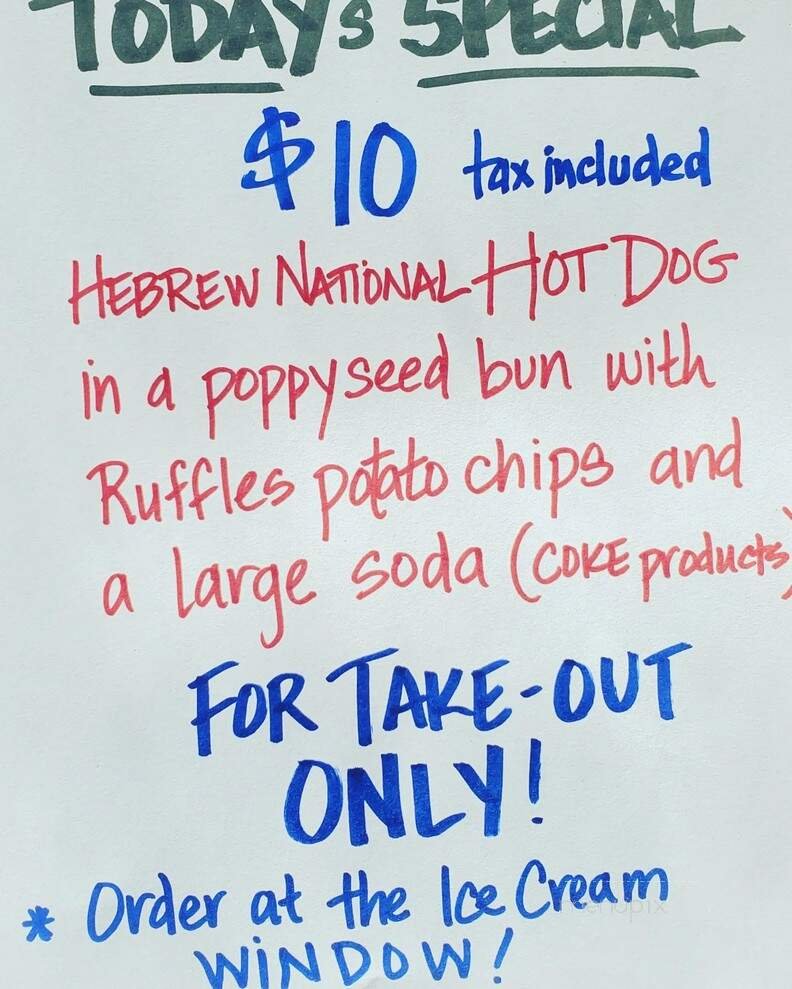 TODAYs SPECIAL
$10 tax included
HEBREW NATIONAL HOT DOG
in a poppyseed bun with
Ruffles potato chips and
a large soda (COKE products)
FOR TAKE-OUT
ONLY!
* Order at the Ice Cream
WINDOW!